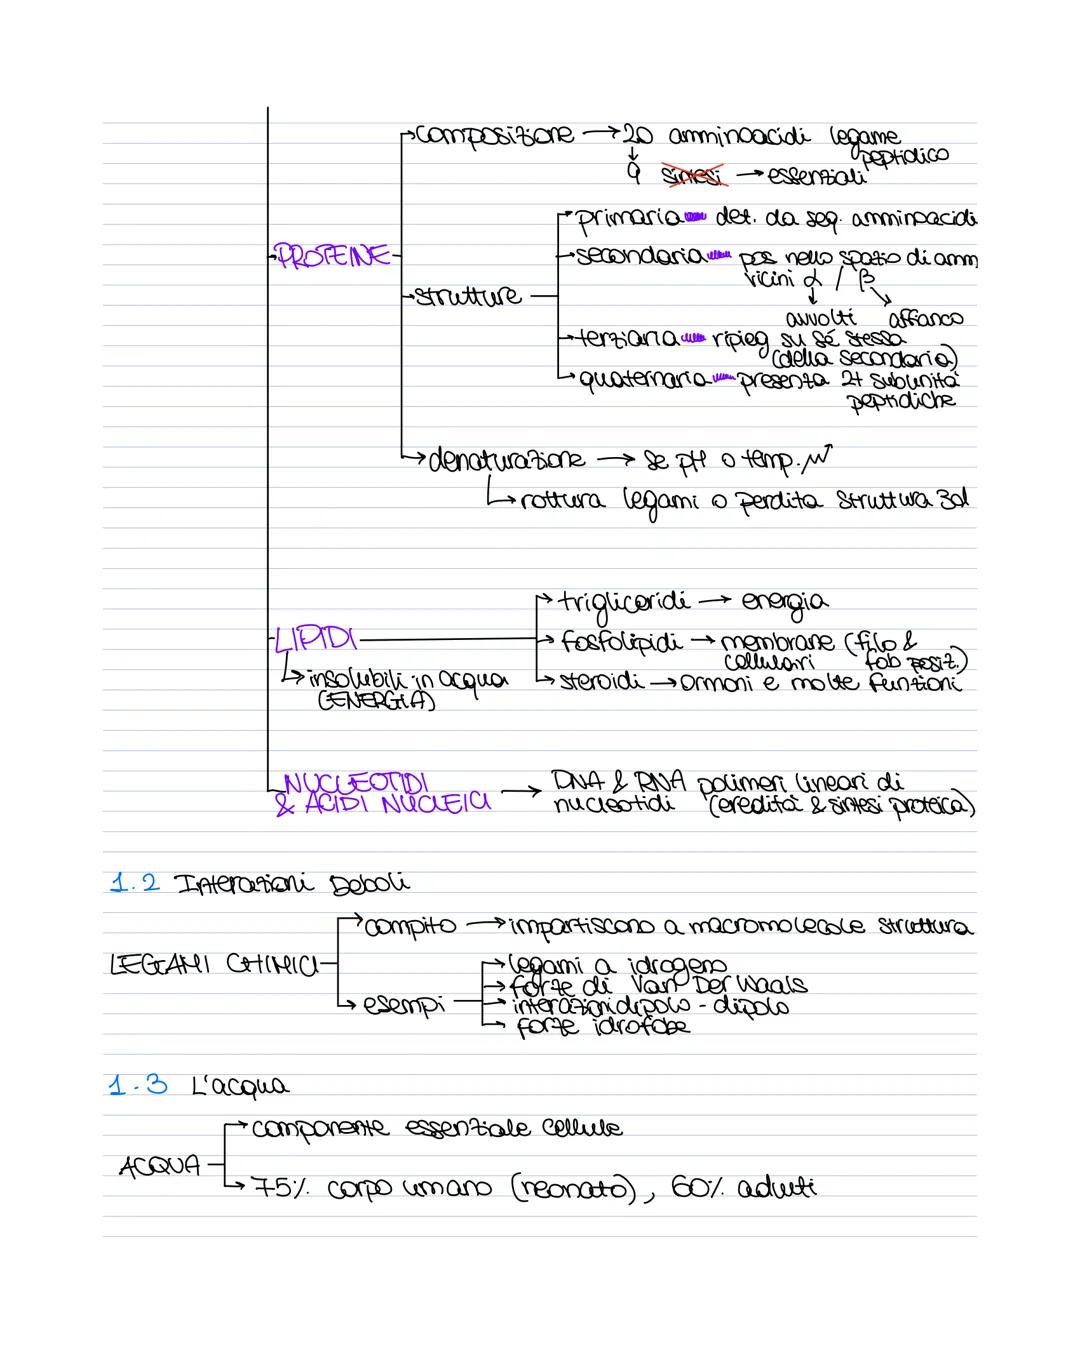 composizione → 20 amminoacidi legame
peptidico
↓
9 sintesi → essenziali
primaria det. da seq. amminoacidi
PROTEINE
secondaria pos nello spazio di amm
vicini α / β
strutture
avvolti affianco
terziaria ripieg su sé stessa
(della secondaria)
quaternaria presenta 2+ subunità
peptidiche
denaturazione → se pH o temp.
rottura legami o perdita struttura 3d
trigliceridi → energia
LIPIDI
fosfolipidi → membrane (filo &
cellulari fob posit.)
insolubili in acqua
(ENERGIA)
steroidi → ormoni e molte funzioni
NUCLEOTIDI
& ACIDI NUCLEICI
→ DNA & RNA polimeri lineari di
nucleotidi (eredità & sintesi proteica)
1.2 Interazioni Deboli
compito → impartiscono a macromolecole struttura
LEGAMI CHIMICI
legami a idrogeno
forze di Van Der Waals
esempi
interazioni dipolo - dipolo
forze idrofobe
1.3 L'acqua
componente essenziale cellule
ACQUA
75% corpo umano (neonato), 60% adulti